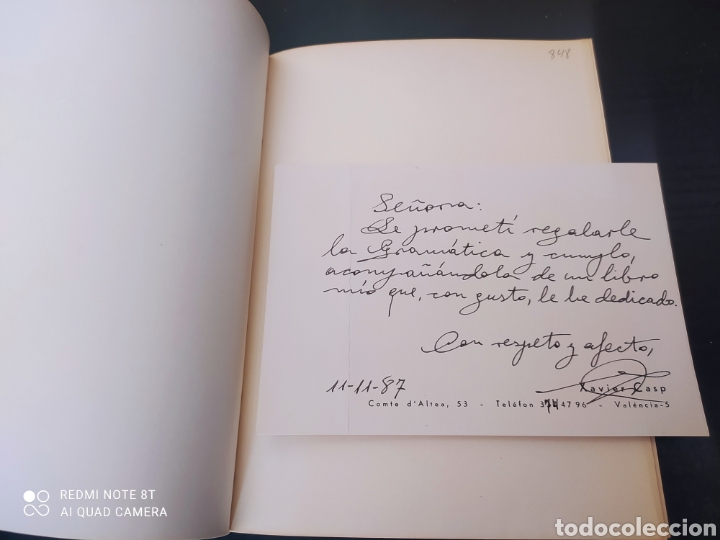 848
Señora:
Le prometí regalarle
la Gramática y cumplo,
acompañándola de un libro
mío que, con gusto, le he dedicado.
Con respeto y afecto,
11-11-87
Xavier Casp
Comte d'Altea, 53 - Telèfon 3744796 - València-5
REDMI NOTE 8T
AI QUAD CAMERA
todocoleccion